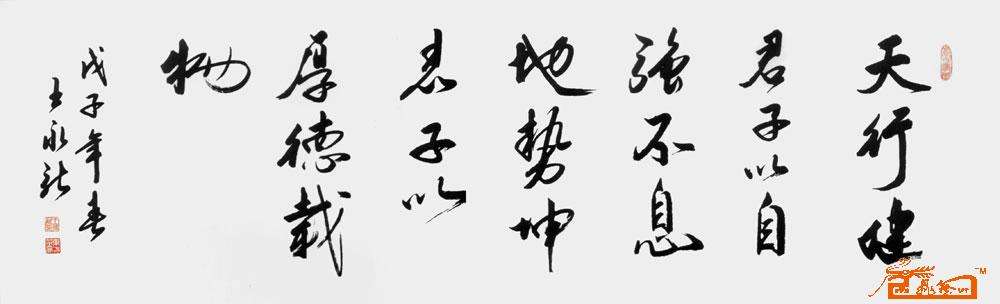 天行健
君子以自
强不息
地势坤
君子以
厚德载
物
戊子年春
王永龙